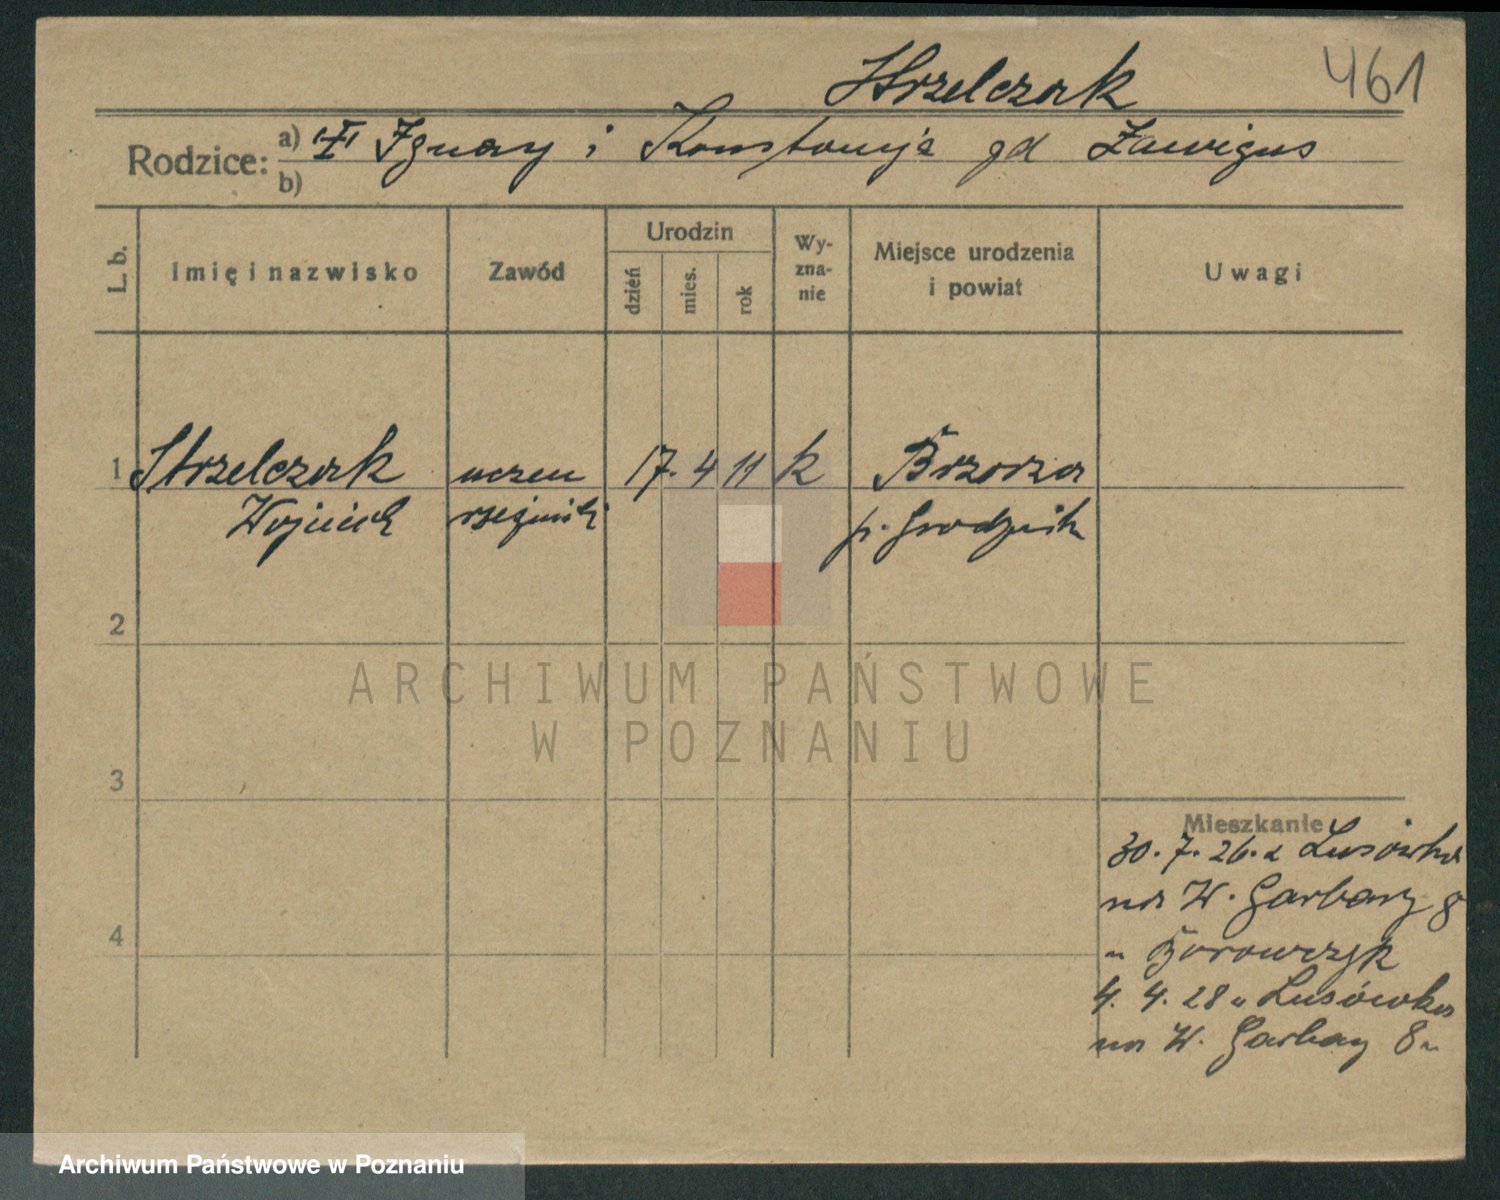 Strzelczak
461
Rodzice: a) Ignacy i Konstancja gd
b)
L. b.
Imię i nazwisko
Zawód
Urodzin
dzień
mies.
rok
Wy-
zna-
nie
Miejsce urodzenia
i powiat
Uwagi
1 Strzelczak uczeń 17. 4 11 k Brzoza
Wojciech rzeźnicki p. Grodzisk
2
ARCHIWUM PAŃSTWOWE
W POZNANIU
3
Mieszkanie
30. 7. 26. z Lusówka
na W. Garbary 8
4
u Borowczyk
4. 4. 28 z Lusówka
na W. Garbary 8
Archiwum Państwowe w Poznaniu